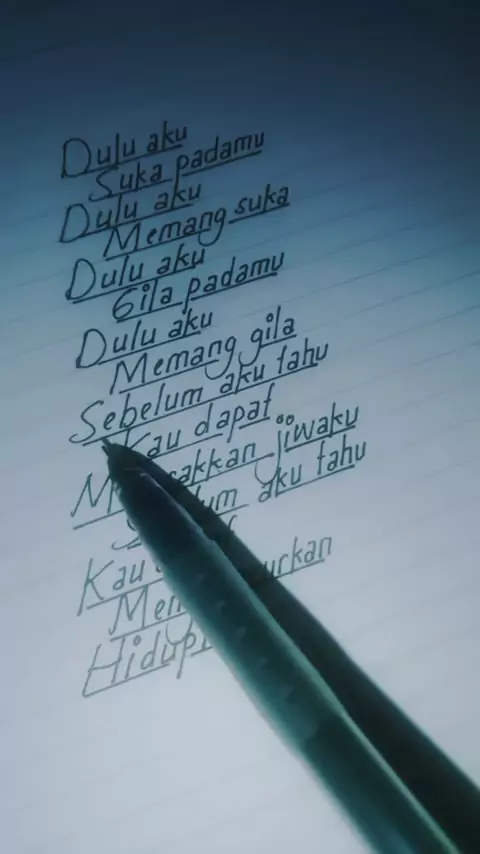 Dulu aku
Suka padamu
Dulu aku
Memang suka
Dulu aku
Gila padamu
Dulu aku
Memang gila
Sebelum aku tahu
Kau dapat
jiwaku
aku tahu
Kau